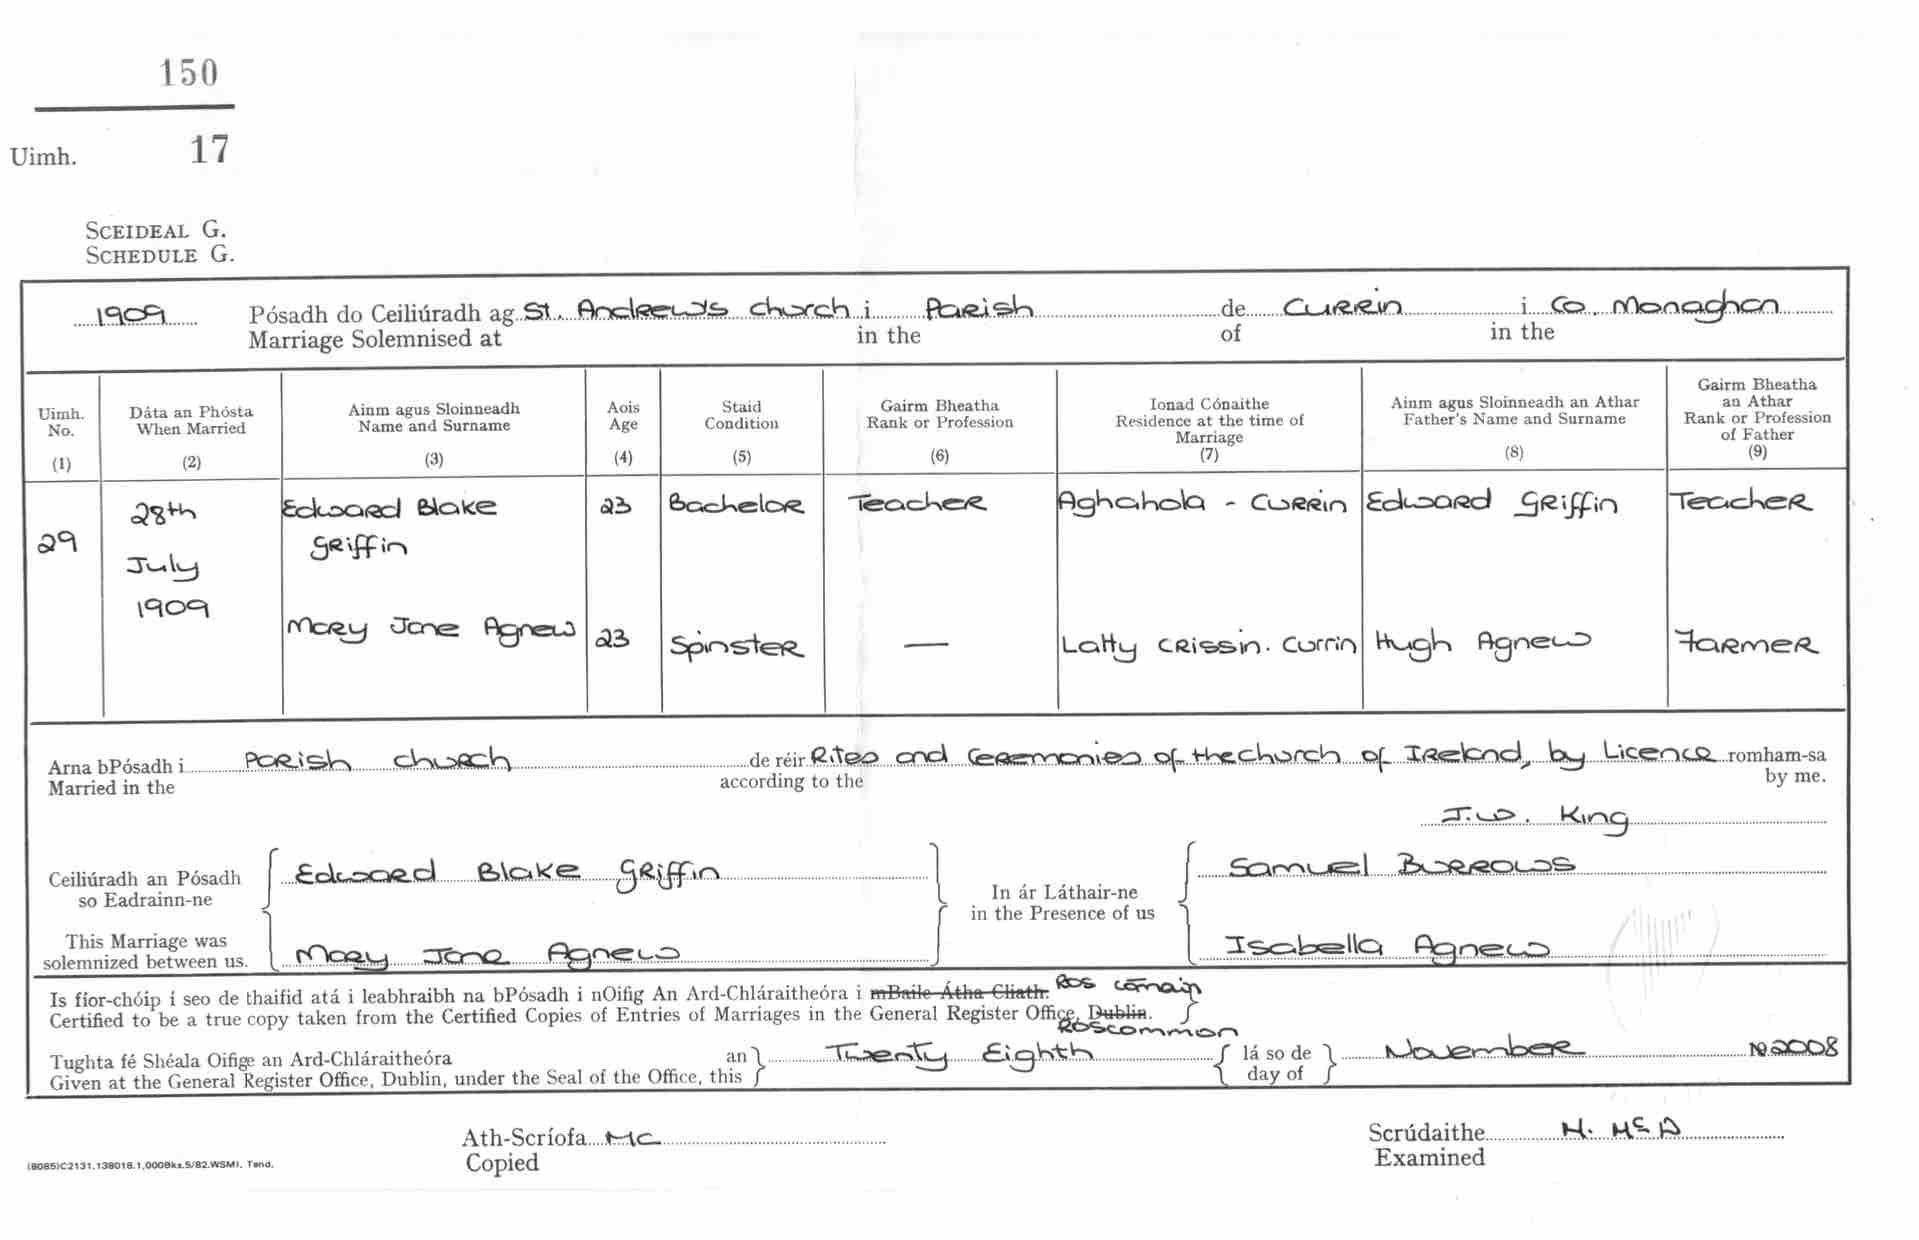 150
Uimh. 17
SCEIDEAL G.
SCHEDULE G.
1909 Pósadh do Ceiliúradh ag St. Andrew's Church i Parish de Currin i Co. Monaghan
Marriage Solemnised at in the of in the
Uimh. No. (1)
Dáta an Phósta When Married (2)
Ainm agus Sloinneadh Name and Surname (3)
Aois Age (4)
Staid Condition (5)
Gairm Bheatha Rank or Profession (6)
Ionad Cónaithe Residence at the time of Marriage (7)
Ainm agus Sloinneadh an Athar Father's Name and Surname (8)
Gairm Bheatha an Athar Rank or Profession of Father (9)
29 28th July 1909
Edward Blake Griffin 23 Bachelor Teacher Aghahola - Currin Edward Griffin Teacher
Mary Jane Agnew 23 Spinster — Latty Crissin. Currin Hugh Agnew Farmer
Arna bPósadh i Parish Church de réir Rites and Ceremonies of the Church of Ireland, by Licence romham-sa
Married in the according to the by me.
J.W. King
Ceiliúradh an Pósadh so Eadrainn-ne
This Marriage was solemnized between us.
Edward Blake Griffin
Mary Jane Agnew
In ár Láthair-ne
in the Presence of us
Samuel Burrows
Isabella Agnew
Is fíor-chóip í seo de thaifid atá i leabhraibh na bPósadh i nOifig An Ard-Chláraitheóra i mBaile Átha Cliath. Ros Comáin
Certified to be a true copy taken from the Certified Copies of Entries of Marriages in the General Register Office, Dublin.
Roscommon
Tughta fé Shéala Oifige an Ard-Chláraitheóra an Twenty Eighth lá so de November 192008
Given at the General Register Office, Dublin, under the Seal of the Office, this day of
Ath-Scríofa MC
Copied
Scrúdaithe M. McD
Examined
(8085)C2131.138018.1,0008ks.5/82.WSMI. Tend.